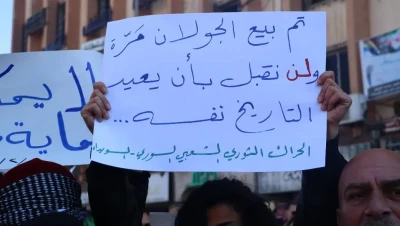 تم بيع الجولان مَرّة
ولن نقبل بأن يعيد
التاريخ نفسه...
الحراك الثوري الشعبي السوري - بسويداء